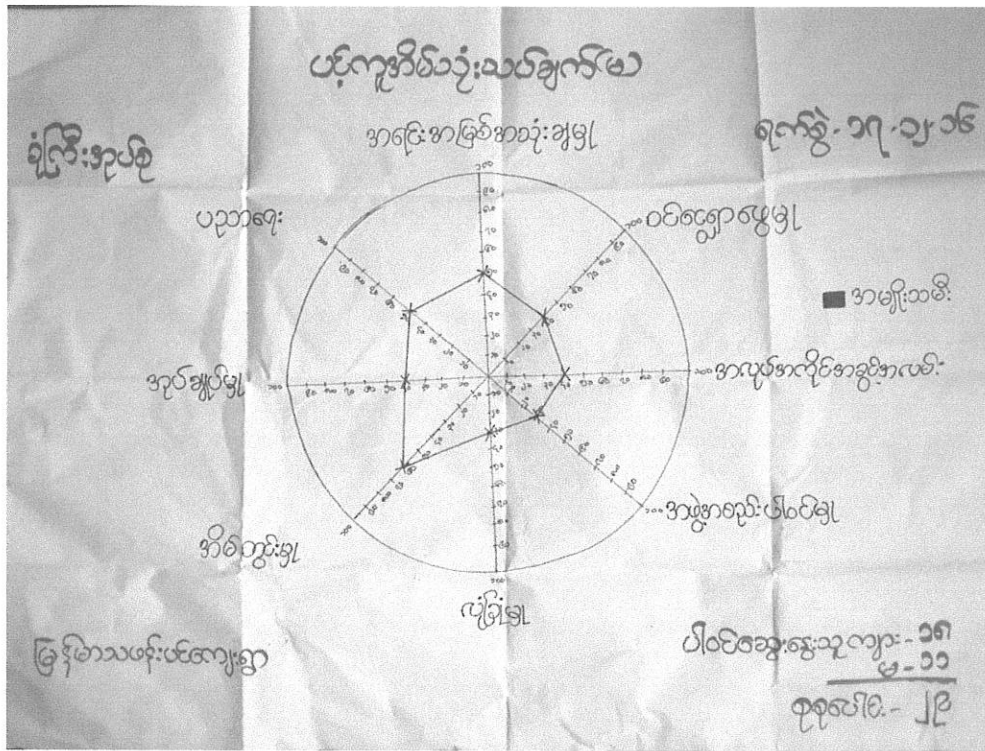 ပင့်ကူအိမ်သုံးသပ်ချက်(မ)
ခုံကြီးအုပ်စု
ရက်စွဲ - ၁၇.၁၂.၁၆
အရင်းအမြစ်အသုံးချမှု
ပညာရေး
ဝင်ငွေရှာဖွေမှု
အမျိုးသမီး
အုပ်ချုပ်မှု
အလုပ်အကိုင်အခွင့်အလမ်း
အိမ်တွင်းမှု
အဖွဲ့အစည်းပါဝင်မှု
လုံခြုံမှု
မြန်မာသဖန်းပင်ကျေးရွာ
ပါဝင်ဆွေးနွေးသူ ကျား - ၁၈
မ - ၁၁
စုစုပေါင်း - ၂၉